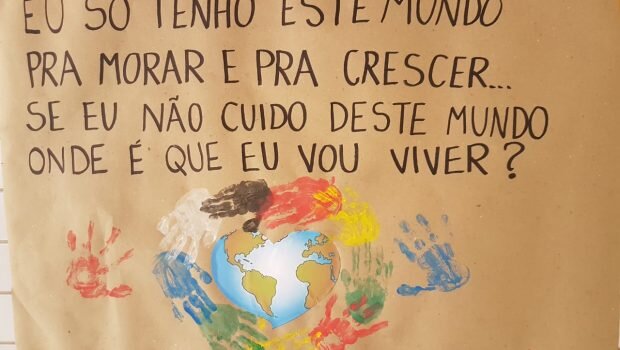 EU SÓ TENHO ESTE MUNDO
PRA MORAR E PRA CRESCER...
SE EU NÃO CUIDO DESTE MUNDO
ONDE É QUE EU VOU VIVER?